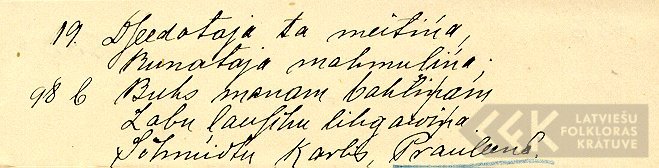 19. Dseedataja ta meitiņa,
Runataja mahmuliņa;
98 b Buhs manam bahliņam
Labu ļaužihu lihgawiņa
Schmidtu Karlis, Prauleenā.
LATVIEŠU
FOLKLORAS
KRĀTUVE